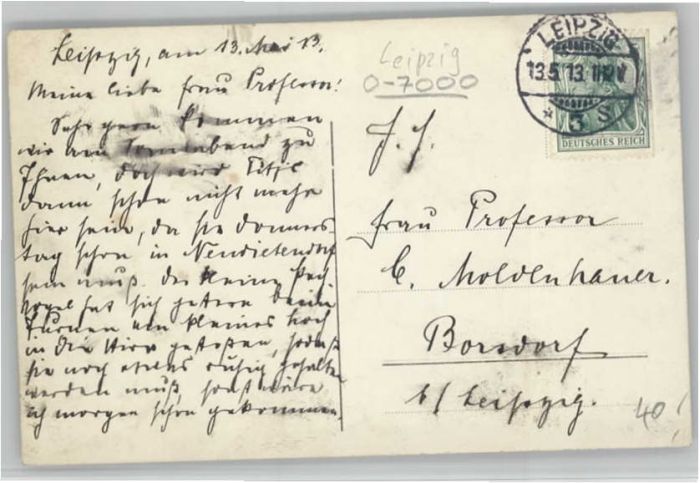 Leipzig, am 13. Mai 13.
Meine liebe Frau Professor!
Sehr gern kommen
wir am Sonnabend zu
Ihnen, doch wird
dann schon nicht mehr
hier sein, da sie Donners
tag schon in Neudietendorf
sein muß. Die kleine Pech
vogel hat sich gestern beim
Turnen ein kleines Loch
in die Stirn gestoßen, sodaß
sie noch etwas ruhig gehalten
werden muß, sonst wäre
ich morgen schon gekommen.
Leipzig
O-7000
LEIPZIG
13.5.13.
* 3 S
DEUTSCHES REICH
Frau Professor
C. Moldenhauer.
Borsdorf
b/ Leipzig.
40